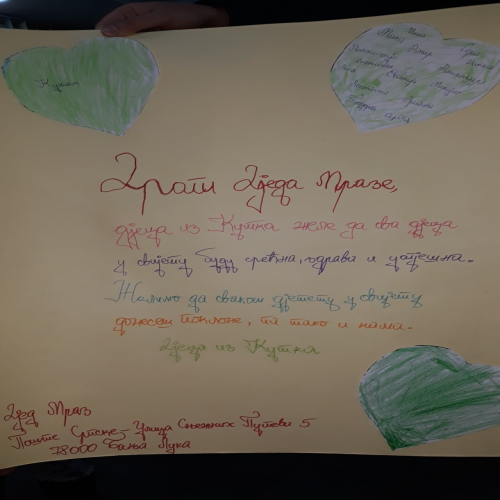 Кутак
Драги Дједа Мразе,
дјеца из Кутка желе да сва дјеца
у свијету буду срећна, здрава и успјешна.
Желимо да сваком дјетету у свијету
донесеш поклоне, па тако и нама.
Дјеца из Кутка
Дјед Мраз
Поште Српске - Улица Сњежних Путева 5
78000 Бања Лука